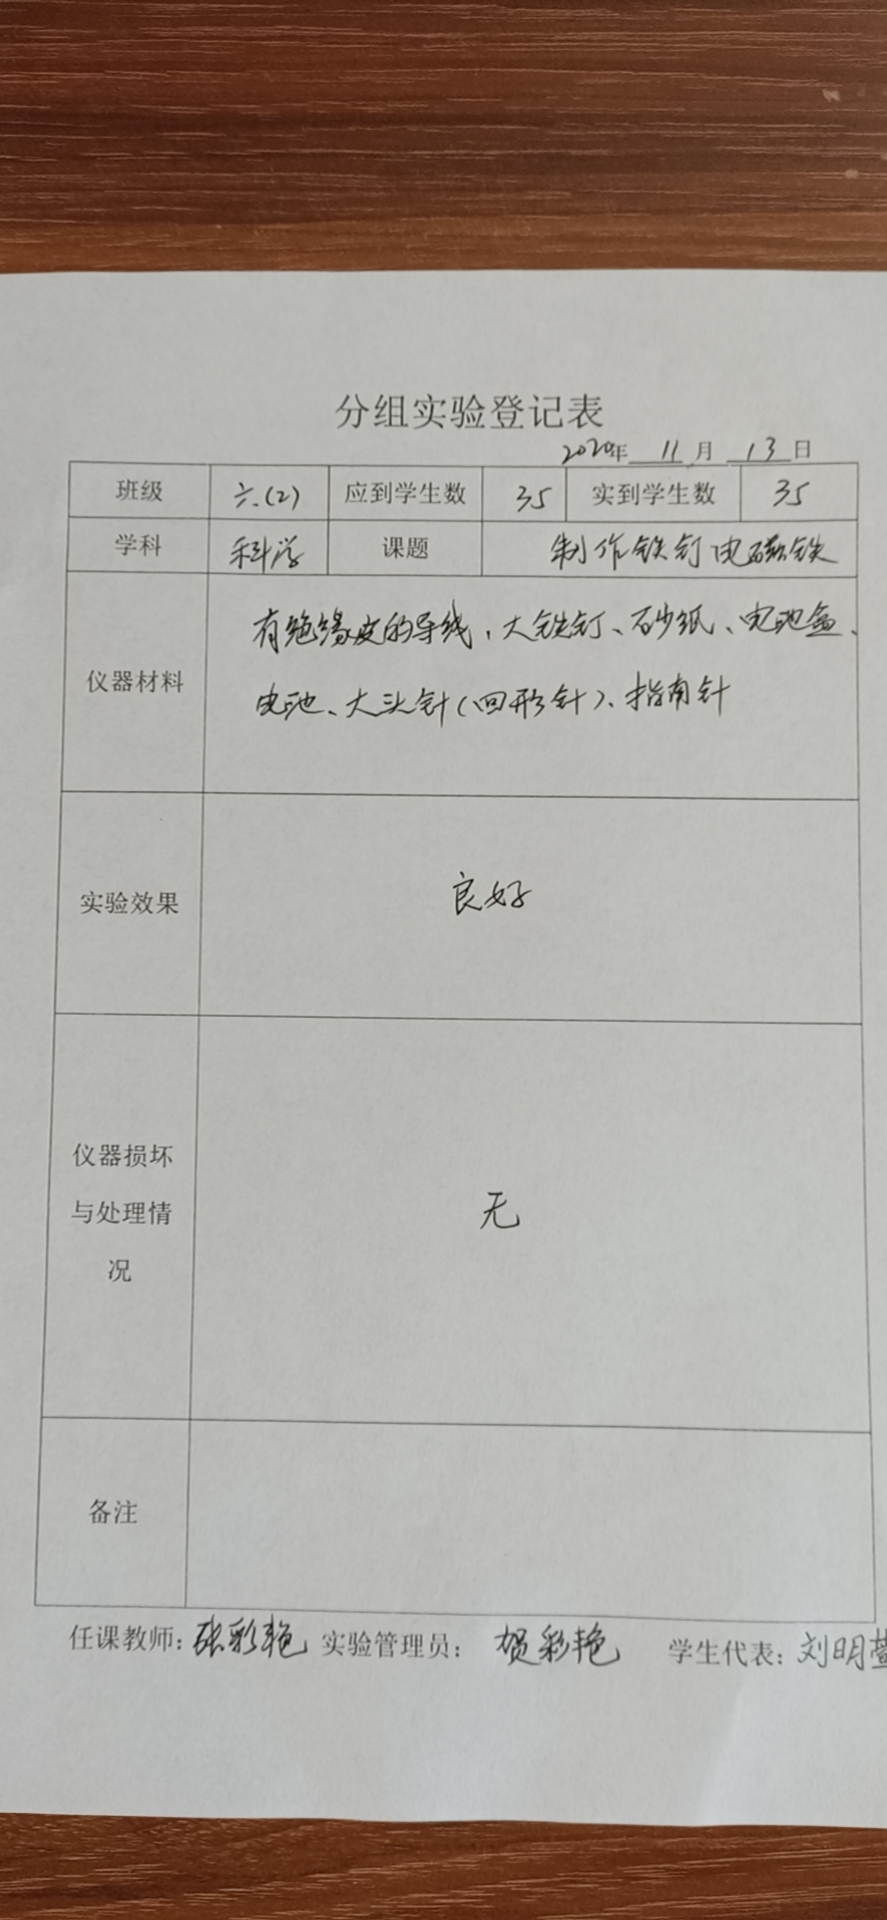 分组实验登记表
2020年 11 月 13 日
班级 六.(2) 应到学生数 35 实到学生数 35
学科 科学 课题 制作铁钉电磁铁
仪器材料 有绝缘皮的导线、大铁钉、砂纸、电池盒、
电池、大头针(回形针)、指南针
实验效果 良好
仪器损坏
与处理情
况
无
备注
任课教师:张彩艳 实验管理员: 贺彩艳 学生代表:刘明萱